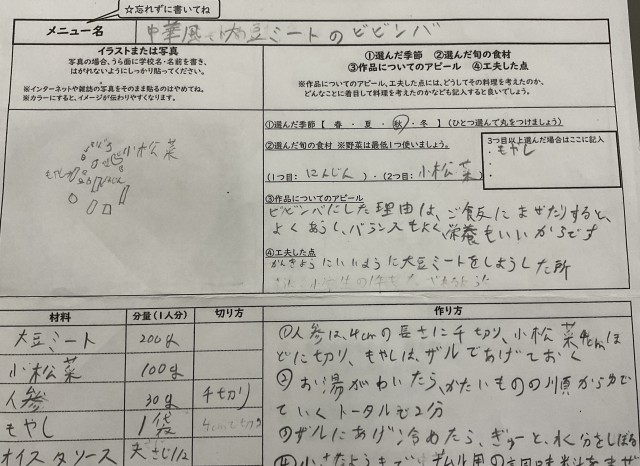 ☆忘れずに書いてね
メニュー名
中華風 大豆ミートのビビンバ
イラストまたは写真
写真の場合、うら面に学校名・名前を書き、
はがれないようにしっかり貼ってください。
※インターネットや雑誌の写真をそのまま貼るのはやめてね。
※カラーにすると、イメージが伝わりやすくなります。
小松菜
もやし
にんじん
①選んだ季節 ②選んだ旬の食材
③作品についてのアピール ④工夫した点
※作品についてのアピール、工夫した点には、どうしてその料理を考えたのか、
どんなことに着目して料理を考えたのかなども記入すると良いでしょう。
①選んだ季節【 春 ・ 夏 ・ 秋 ・ 冬 】（ひとつ選んで丸をつけましょう）
②選んだ旬の食材 ※野菜は最低1つ使いましょう。
(1つ目: にんじん )・(2つ目: 小松菜 )
3つ目以上選んだ場合はここに記入
・もやし
・
・
③作品についてのアピール
ビビンバにした理由は、ご飯にまぜたりすると、
よくあうし、バランスもよく、栄養もいいからです
④工夫した点
かんきょうにいいように大豆ミートをしようした所
材料 分量（1人分） 切り方
大豆ミート 200g
小松菜 100g
人参 30g 千切り
もやし 1袋 4cmに切る
オイスタソース 大さじ1/2
作り方
①人参は、4cmの長さに千切り、小松菜4cmほ
どに切り、もやしは、ザルであげておく
② お湯がわいたら、かたいものの順からゆで
ていく トータルで2分
ザルにあげ冷めたら、ぎゅーと、水分をしぼる
④